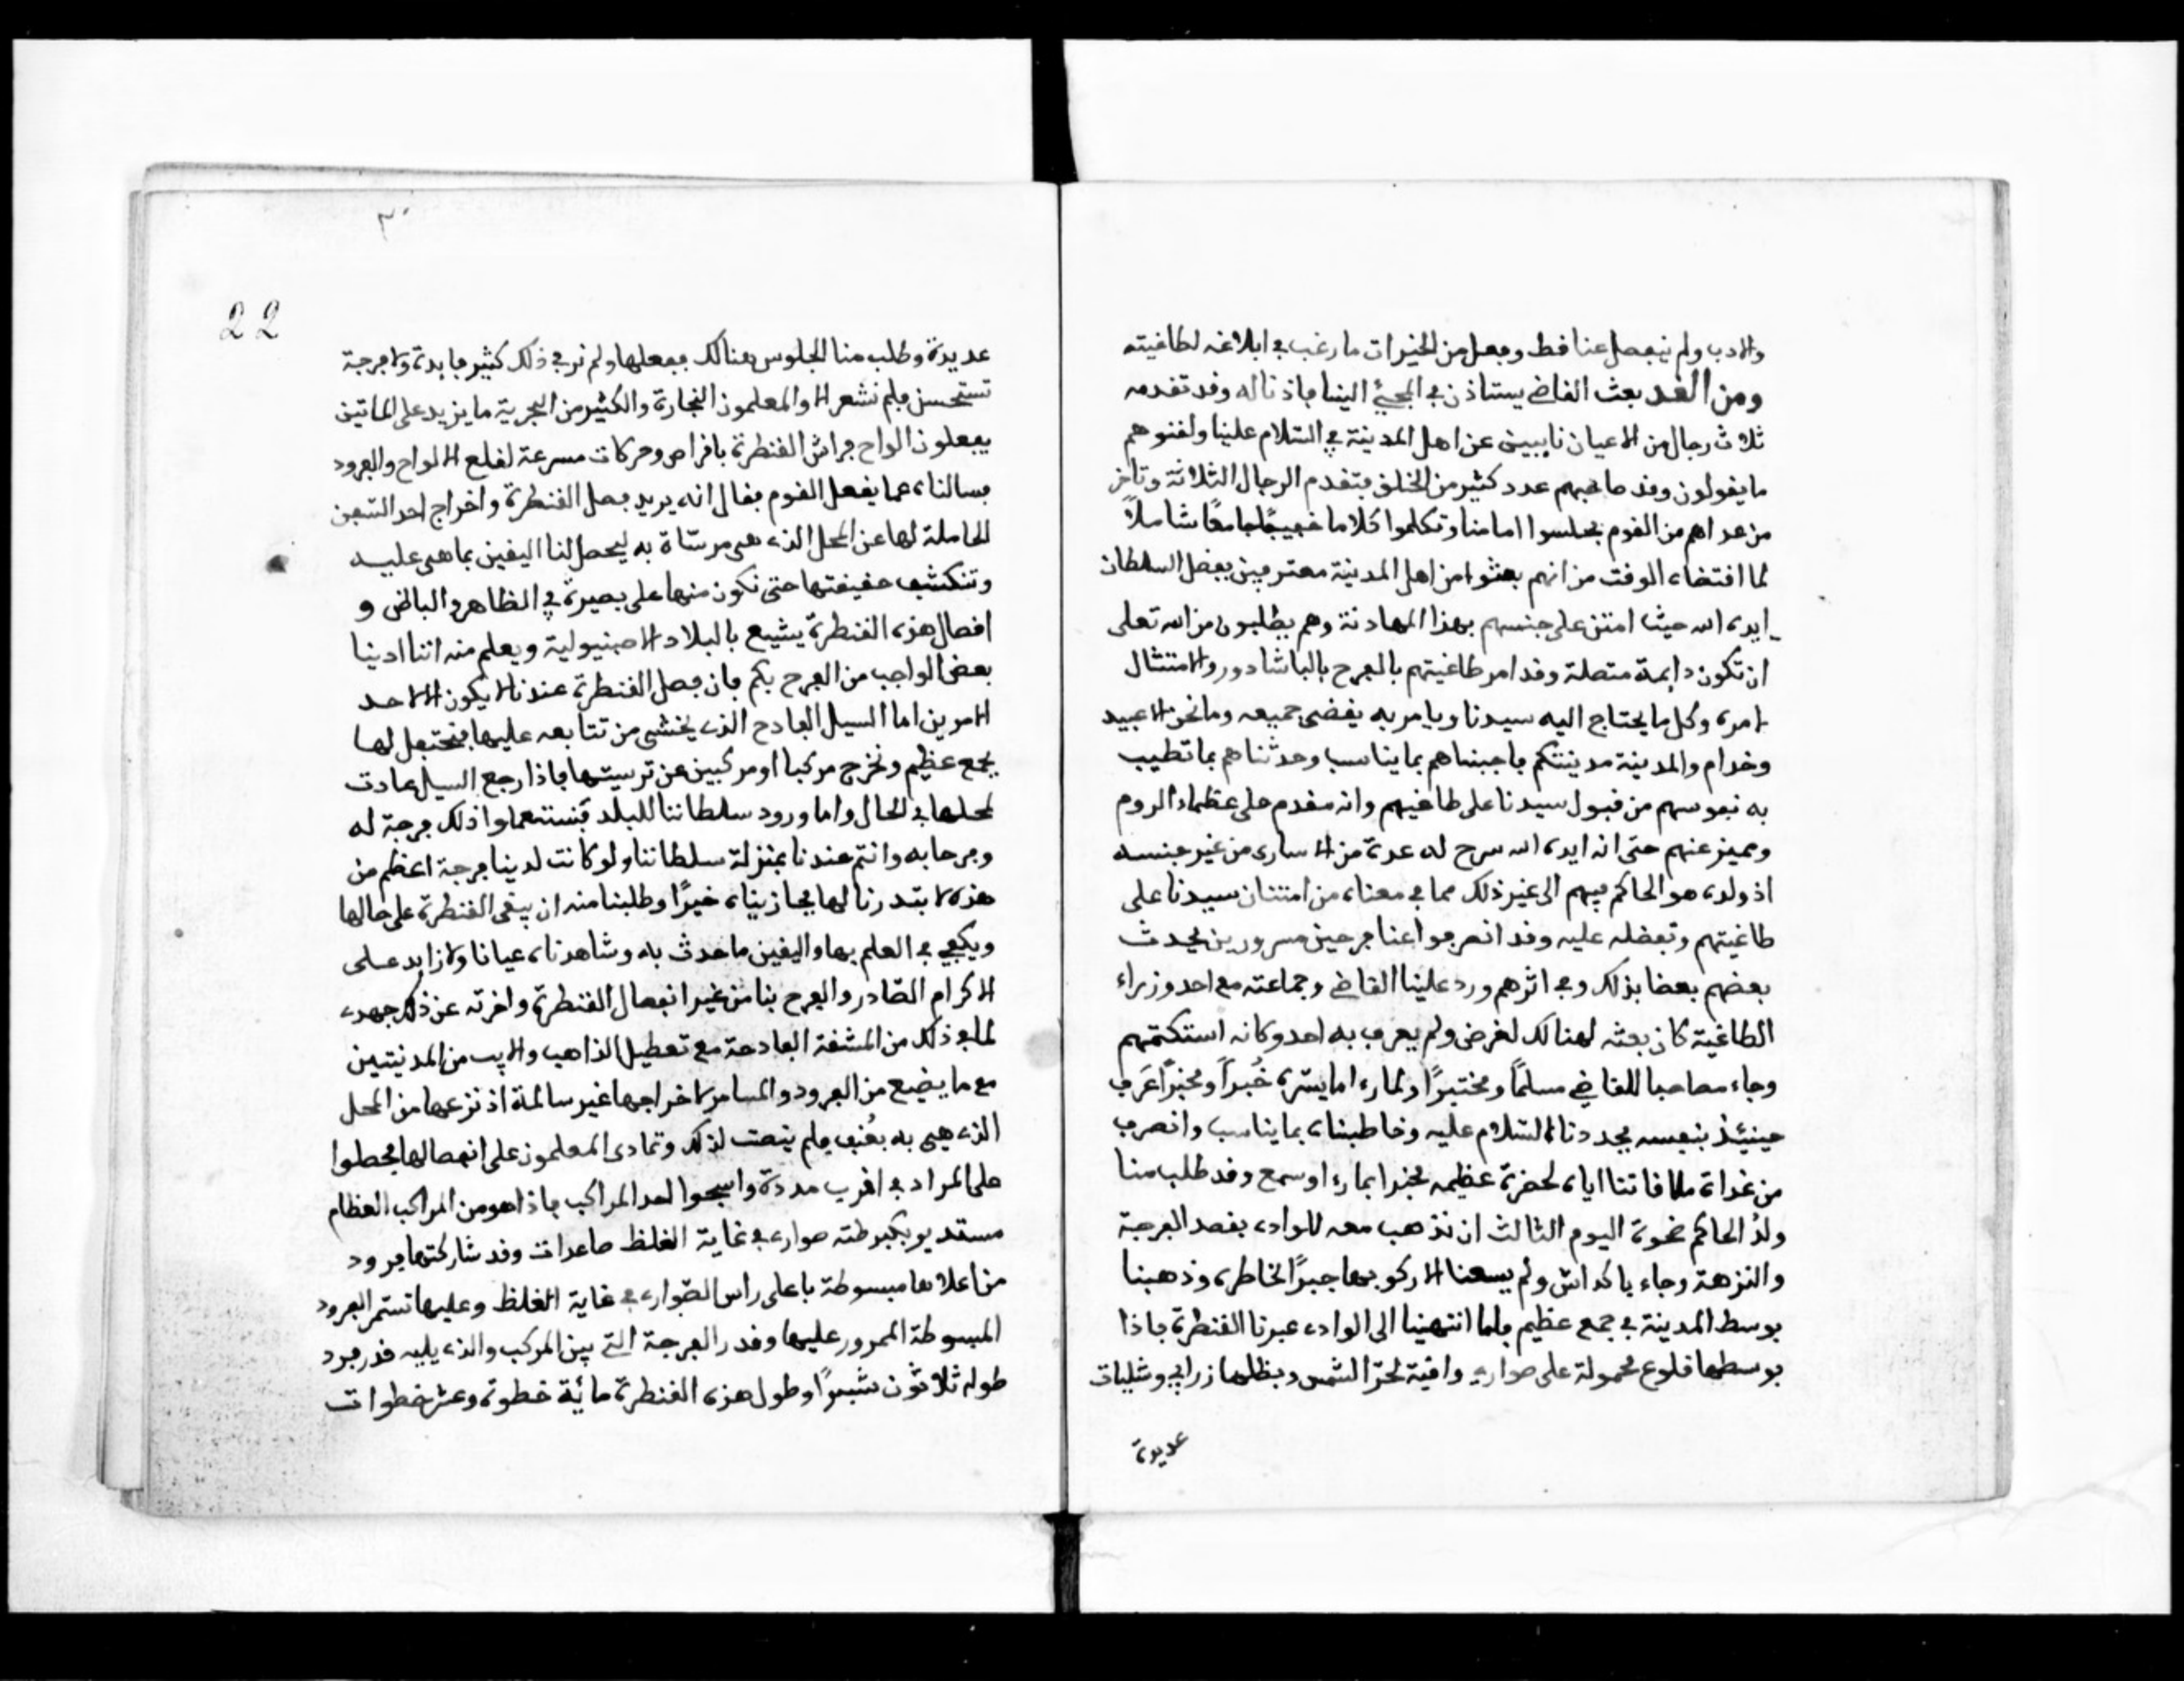 والادب ولم ينفصل عنا فط وفعل من الخيرات ما رغب في ابلاغه لطاغيته
ومن الغد بعث القاضي يستاذن في المجيئ الينا فاذنا له وقد تقدمه
ثلاث رجال من الاعيان نايبين عن اهل المدينة في السلام علينا ولقنوهم
ما يقولون وقد صاحبهم عدد كثير من الخلق فتقدم الرجال الثلاثة وتاخر
من عداهم من القوم فجلسوا امامنا وتكلموا كلاما فصيحًا جامعًا شاملاً
لما اقتضاه الوقت من انهم بعثوا من اهل المدينة معترفين بفضل السلطان
ايده الله حيث امتن على جنسهم بهذا المهادنة وهم يطلبون من الله تعلى
ان تكون دايمة متصلة وقد امر طاغيتهم بالفرح بالباشادور والامتثال
لامره وكل ما يحتاج اليه سيدنا ويامر به يقضى جميعه وما نحن الا عبيد
وخدام والمدينة مدينتكم فاجبناهم بما يناسب وحدثناهم بما تطيب
به نفوسهم من قبول سيدنا على طاغيتهم وانه مقدم على عظماء الروم
ومميز عنهم حتى انه ايده الله سرح له عدة من الاسارى من غير جنسه
اذ ولده هو الحاكم فيهم الى غير ذلك مما في معناه من امتنان سيدنا على
طاغيتهم وتفضله عليه وقد انصرفوا عنا فرحين مسرورين يحدث
بعضهم بعضا بذلك وفي اثرهم ورد علينا القاضي وجماعته مع احد وزراء
الطاغية كان بعثه لهنالك لغرض ولم يعرف به احد وكانه استكتمهم
وجاء مصاحبا للقاضي مسلمًا ومختبرًا ولما رءا ما يسره خُبراً ومخبرًا عَرف
حينئذ بنفسه فجددنا السلام عليه وخاطبناه بما يناسب وانصرف
من غداة ملاقاتنا اياه لحضرة عظيمه مخبرا بما رءا وسمع وقد طلب منا
ولدُ الحاكم ضحوة اليوم الثالث ان نذهب معه للوادي بقصد الفرجة
والنزهة وجاء باكداش ولم يسعنا الا ركوبها جبرًا لخاطره وذهبنا
بوسط المدينة في جمع عظيم فلما انتهينا الى الوادي عبرنا القنطرة فاذا
بوسطها قلوع محمولة على صواري واقية لحرّ الشمس وبظلها زرابي وشليات
عديدة
٣٠
22
عديدة وطلب منا الجلوس هنالك ففعلها ولم نر في ذلك كثير فايدة ولا فرجة
تستحسن فلم نشعر الا والمعلمون النجارة والكثير من البحرية ما يزيد على الماتين
يفعلون الواح فراش القنطرة بافراص وحركات مسرعة لقلع الالواح والفرود
فسالناه عما يفعل القوم فقال انه يريد فصل القنطرة واخراج احد السفن
الحاملة لها عن المحل الذي هى مرسّاة به ليحصل لنا اليقين بما هى عليه
وتنكشف حقيقتها حتى نكون منها على بصيرة في الظاهر والباطن و
افصال هذه القنطرة يشيع بالبلاد الاصبنيولية ويعلم منه اننا ادينا
بعض الواجب من الفرح بكم فان فصل القنطرة عندنا لا يكون الا لاحد
الامرين اما السيل الفادح الذي يخشى من تتابعه عليها فنحتفل لها
بجمع عظيم ونخرج مركبا او مركبين عن ترسيتها فاذا رجع السيل عادت
لمحلها في الحال واما ورود سلطاننا للبلد فنستعملوا ذلك فرجة له
وفرحا به وانتم عندنا بمنزلة سلطاننا ولو كانت لدينا فرجة اعظم من
هذه لابتدرنا لها فجازيناه خيرًا وطلبنا منه ان يبقى القنطرة على حالها
ويكفي في العلم بها واليقين ما حدث به وشاهدناه عيانا ولا زايد على
الاكرام الصّادر والفرح بنا من غير انفصال القنطرة واخرته عن ذلك جهدي
لما في ذلك من المشقة الفادحة مع تعطيل الذاهب والايب من المدينتين
مع ما يضيع من الفرود والمسامر لاخراجها غير سالمة اذ نزعها من المحل
الذي هى به بعُنف فلم ينصت لذلك وتمادى المعلمون على انفصالها فحصلوا
على المراد في اقرب مدة واسبحوا احد المراكب فاذا هو من المراكب العظام
مستدير بكبرطته صواري في غاية الغلظ صاعدات وقد شاركتها فرود
من اعلاها مبسوطة باعلى راس الصّواري في غاية الغلظ وعليها تستمر الفرود
المبسوطة الممرور عليها وقدر الفرجة التي بين المركب والذي يليه قدر فرد
طوله ثلاثون شبرًا وطول هذه القنطرة مائة خطوة وعشر خطوات